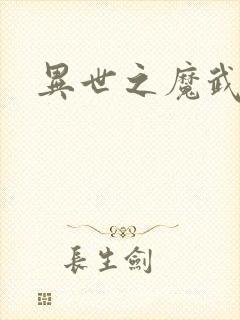 異世之魔武
長生劍